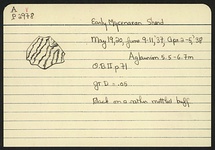 A
P 2978
Early Mycenaean Sherd
May 19,20, June 9-11, '37, Apr. 2-5, '38
Aglaurion 5.5-6.7m
O.E. II p. 71
gr. D. = .05
Black on a rather mottled buff